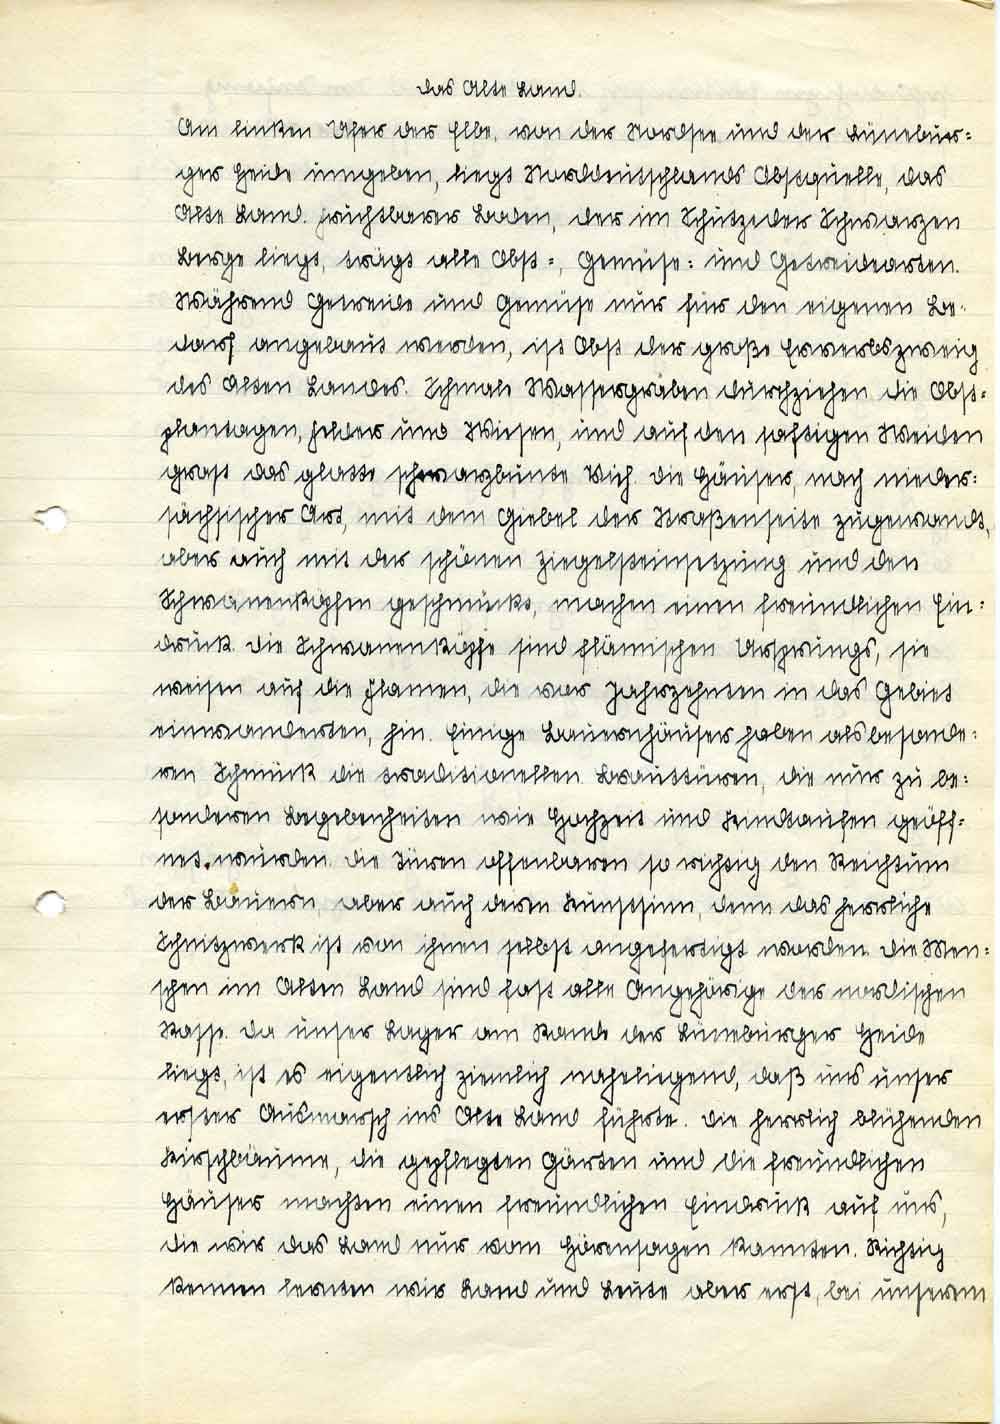 Das Alte Land.
Am linken Ufer der Elbe, von der Nordsee und der Lünebur-
ger Heide umgeben, liegt Norddeutschlands Obstquelle, das
Alte Land. Fruchtbarer Boden, der im Schutze der Schwarzen
Berge liegt, trägt alle Obst-, Gemüse- und Getreidearten.
Während Getreide und Gemüse nur für den eigenen Be-
darf angebaut werden, ist Obst der große Erwerbszweig
des Alten Landes. Schmale Wassergräben durchziehen die Obst-
plantagen, Felder und Wiesen, und auf den saftigen Weiden
grast das glatte schwarzbunte Vieh. Die Häuser, nach nieder-
sächsischer Art, mit dem Giebel der Straßenseite zugewandt,
aber auch mit der schönen Ziegelsteinsetzung und den
Schwanenköpfen geschmückt, machen einen freundlichen Ein-
druck. Die Schwanenköpfe sind flämischen Ursprungs, sie
weisen auf die Flamen, die vor Jahrzehnten in das Gebiet
einwanderten, hin. Einige Bauernhäuser haben als besonde-
ren Schmuck die traditionellen Brauttüren, die nur zu be-
sonderen Begebenheiten wie Hochzeit und Kindtaufen geöff-
net wurden. Die Türen offenbaren so richtig den Reichtum
der Bauern, aber auch deren Kunstsinn, denn das herrliche
Schnitzwerk ist von ihnen selbst angefertigt worden. Die Men-
schen im Alten Land sind fast alle Angehörige der nordischen
Rasse. Da unser Lager am Rande der Lüneburger Heide
liegt, ist es eigentlich ziemlich naheliegend, daß uns unser
erster Ausmarsch ins Alte Land führte. Die herrlich blühenden
Kirschbäume, die gepflegten Gärten und die freundlichen
Häuser machten einen freundlichen Eindruck auf uns,
die wir das Land nur vom Hörensagen kannten. Richtig
kennen lernten wir Land und Leute aber erst, bei unserem